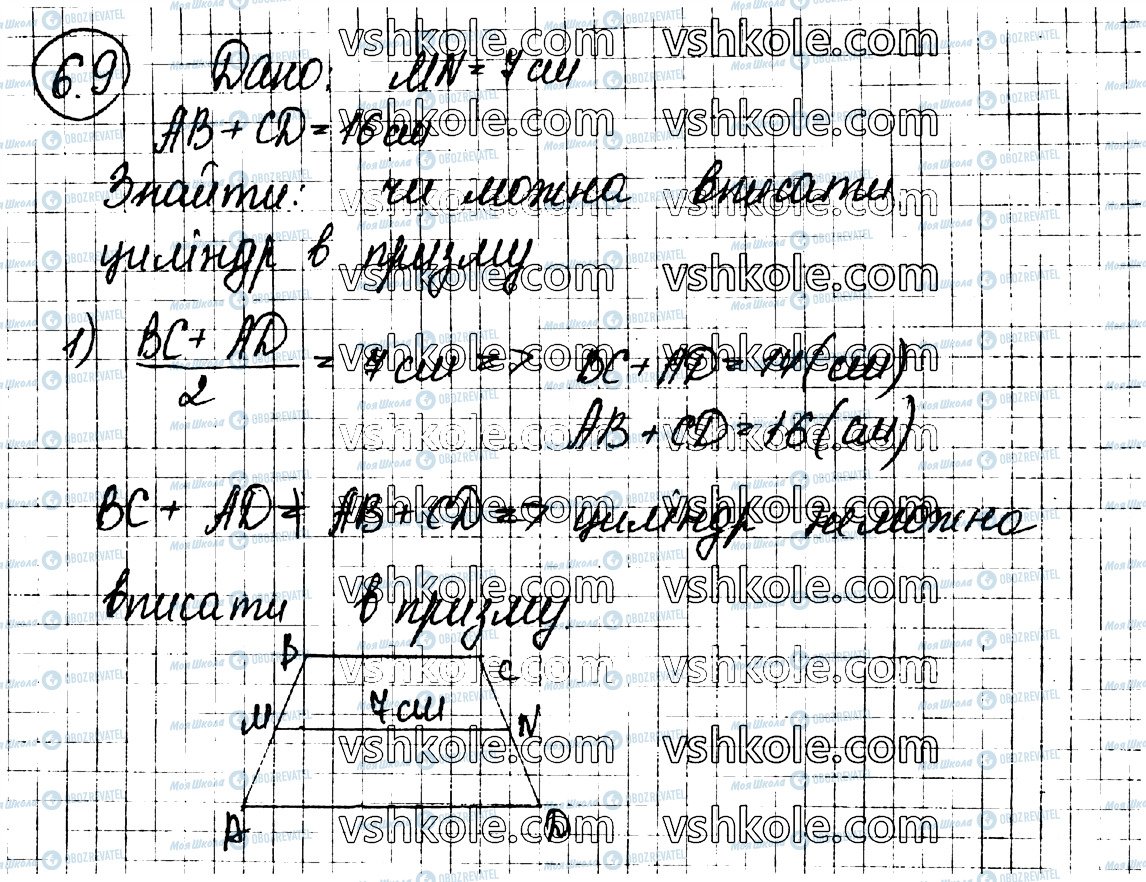 6.9 Дано: MN = 7 см
AB + CD = 16 см
Знайти: чи можна вписати
циліндр в призму
1) BC + AD / 2 = 7 см => BC + AD = 14 (см)
AB + CD = 16 (см)
BC + AD ≠ AB + CD => циліндр неможна
вписати в призму.
B C
M 7 см N
A D
vshkole.com
Моя Школа OBOZREVATEL